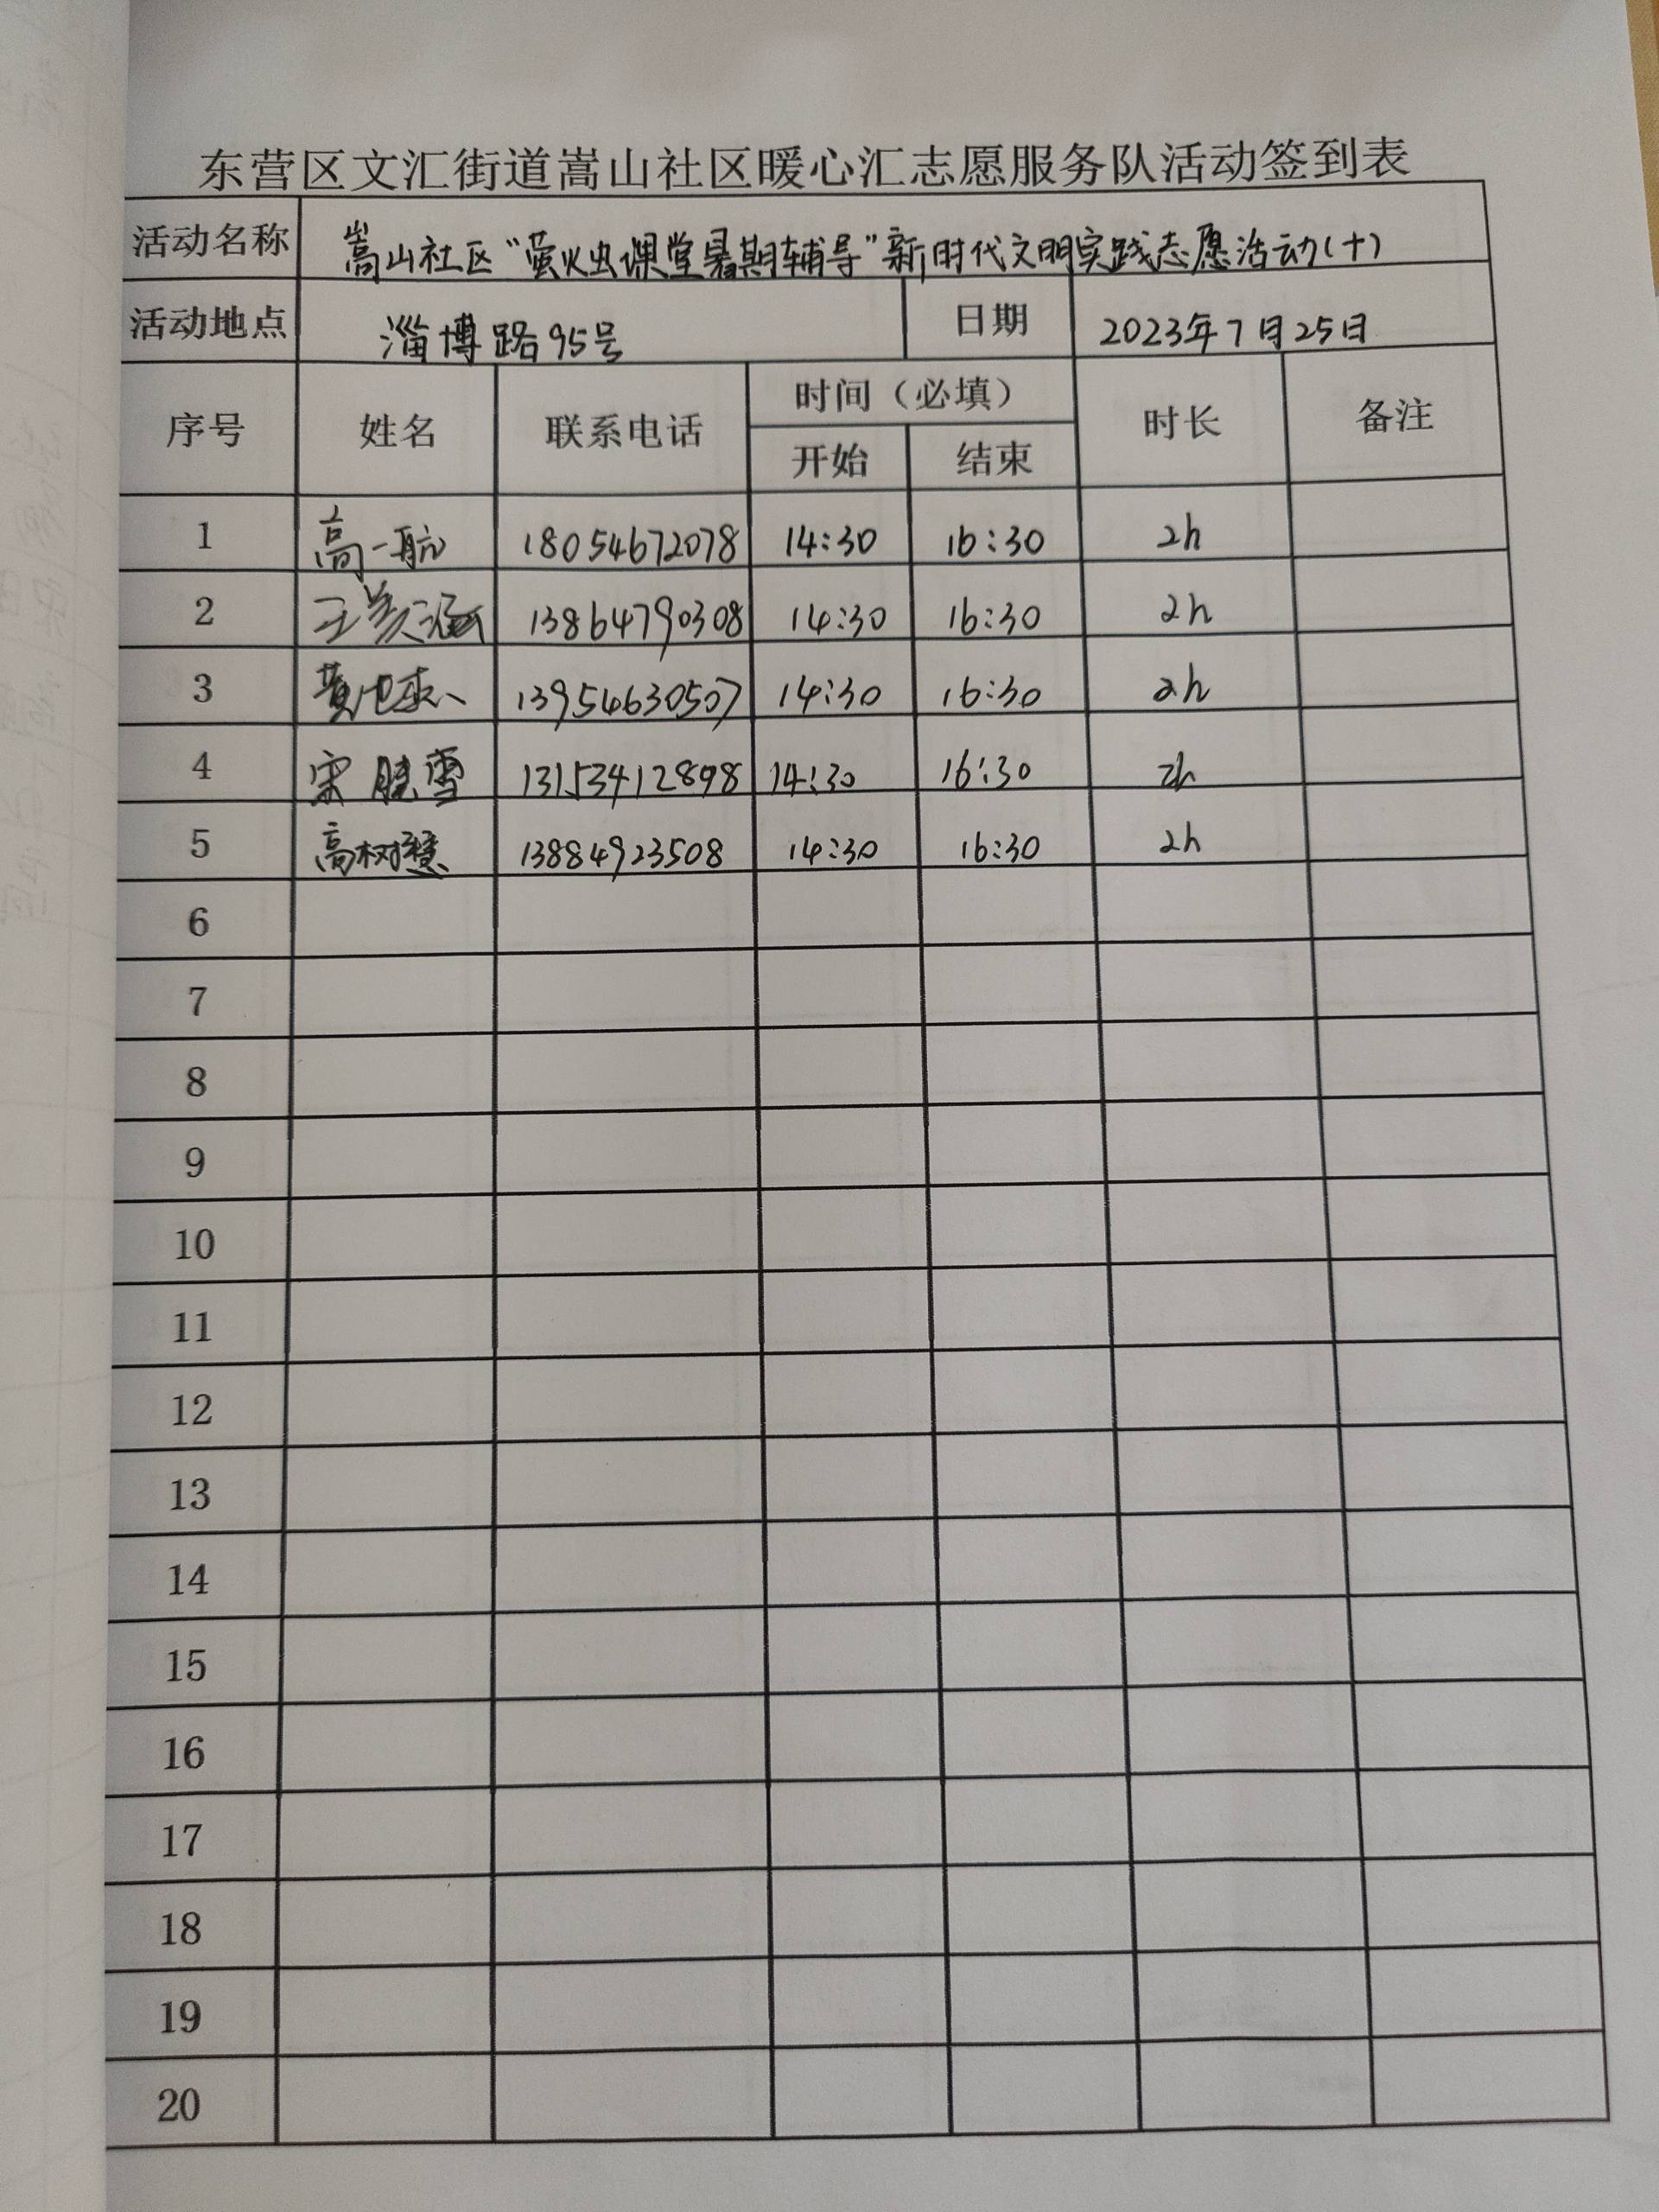 东营区文汇街道嵩山社区暖心汇志愿服务队活动签到表
活动名称 嵩山社区“萤火虫课堂暑期辅导”新时代文明实践志愿活动(十)
活动地点 淄博路95号 日期 2023年7月25日
序号 姓名 联系电话 时间（必填） 时长 备注
开始 结束
1 高一航 18054672078 14:30 16:30 2h
2 王美涵 13864790308 14:30 16:30 2h
3 黄 13954630507 14:30 16:30 2h
4 宋晓雪 13153412898 14:30 16:30 2h
5 高树慧 13884923508 14:30 16:30 2h
6
7
8
9
10
11
12
13
14
15
16
17
18
19
20